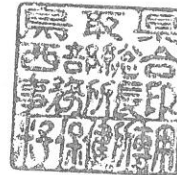 鳥取県
西部総合
事務所長印
保健専用